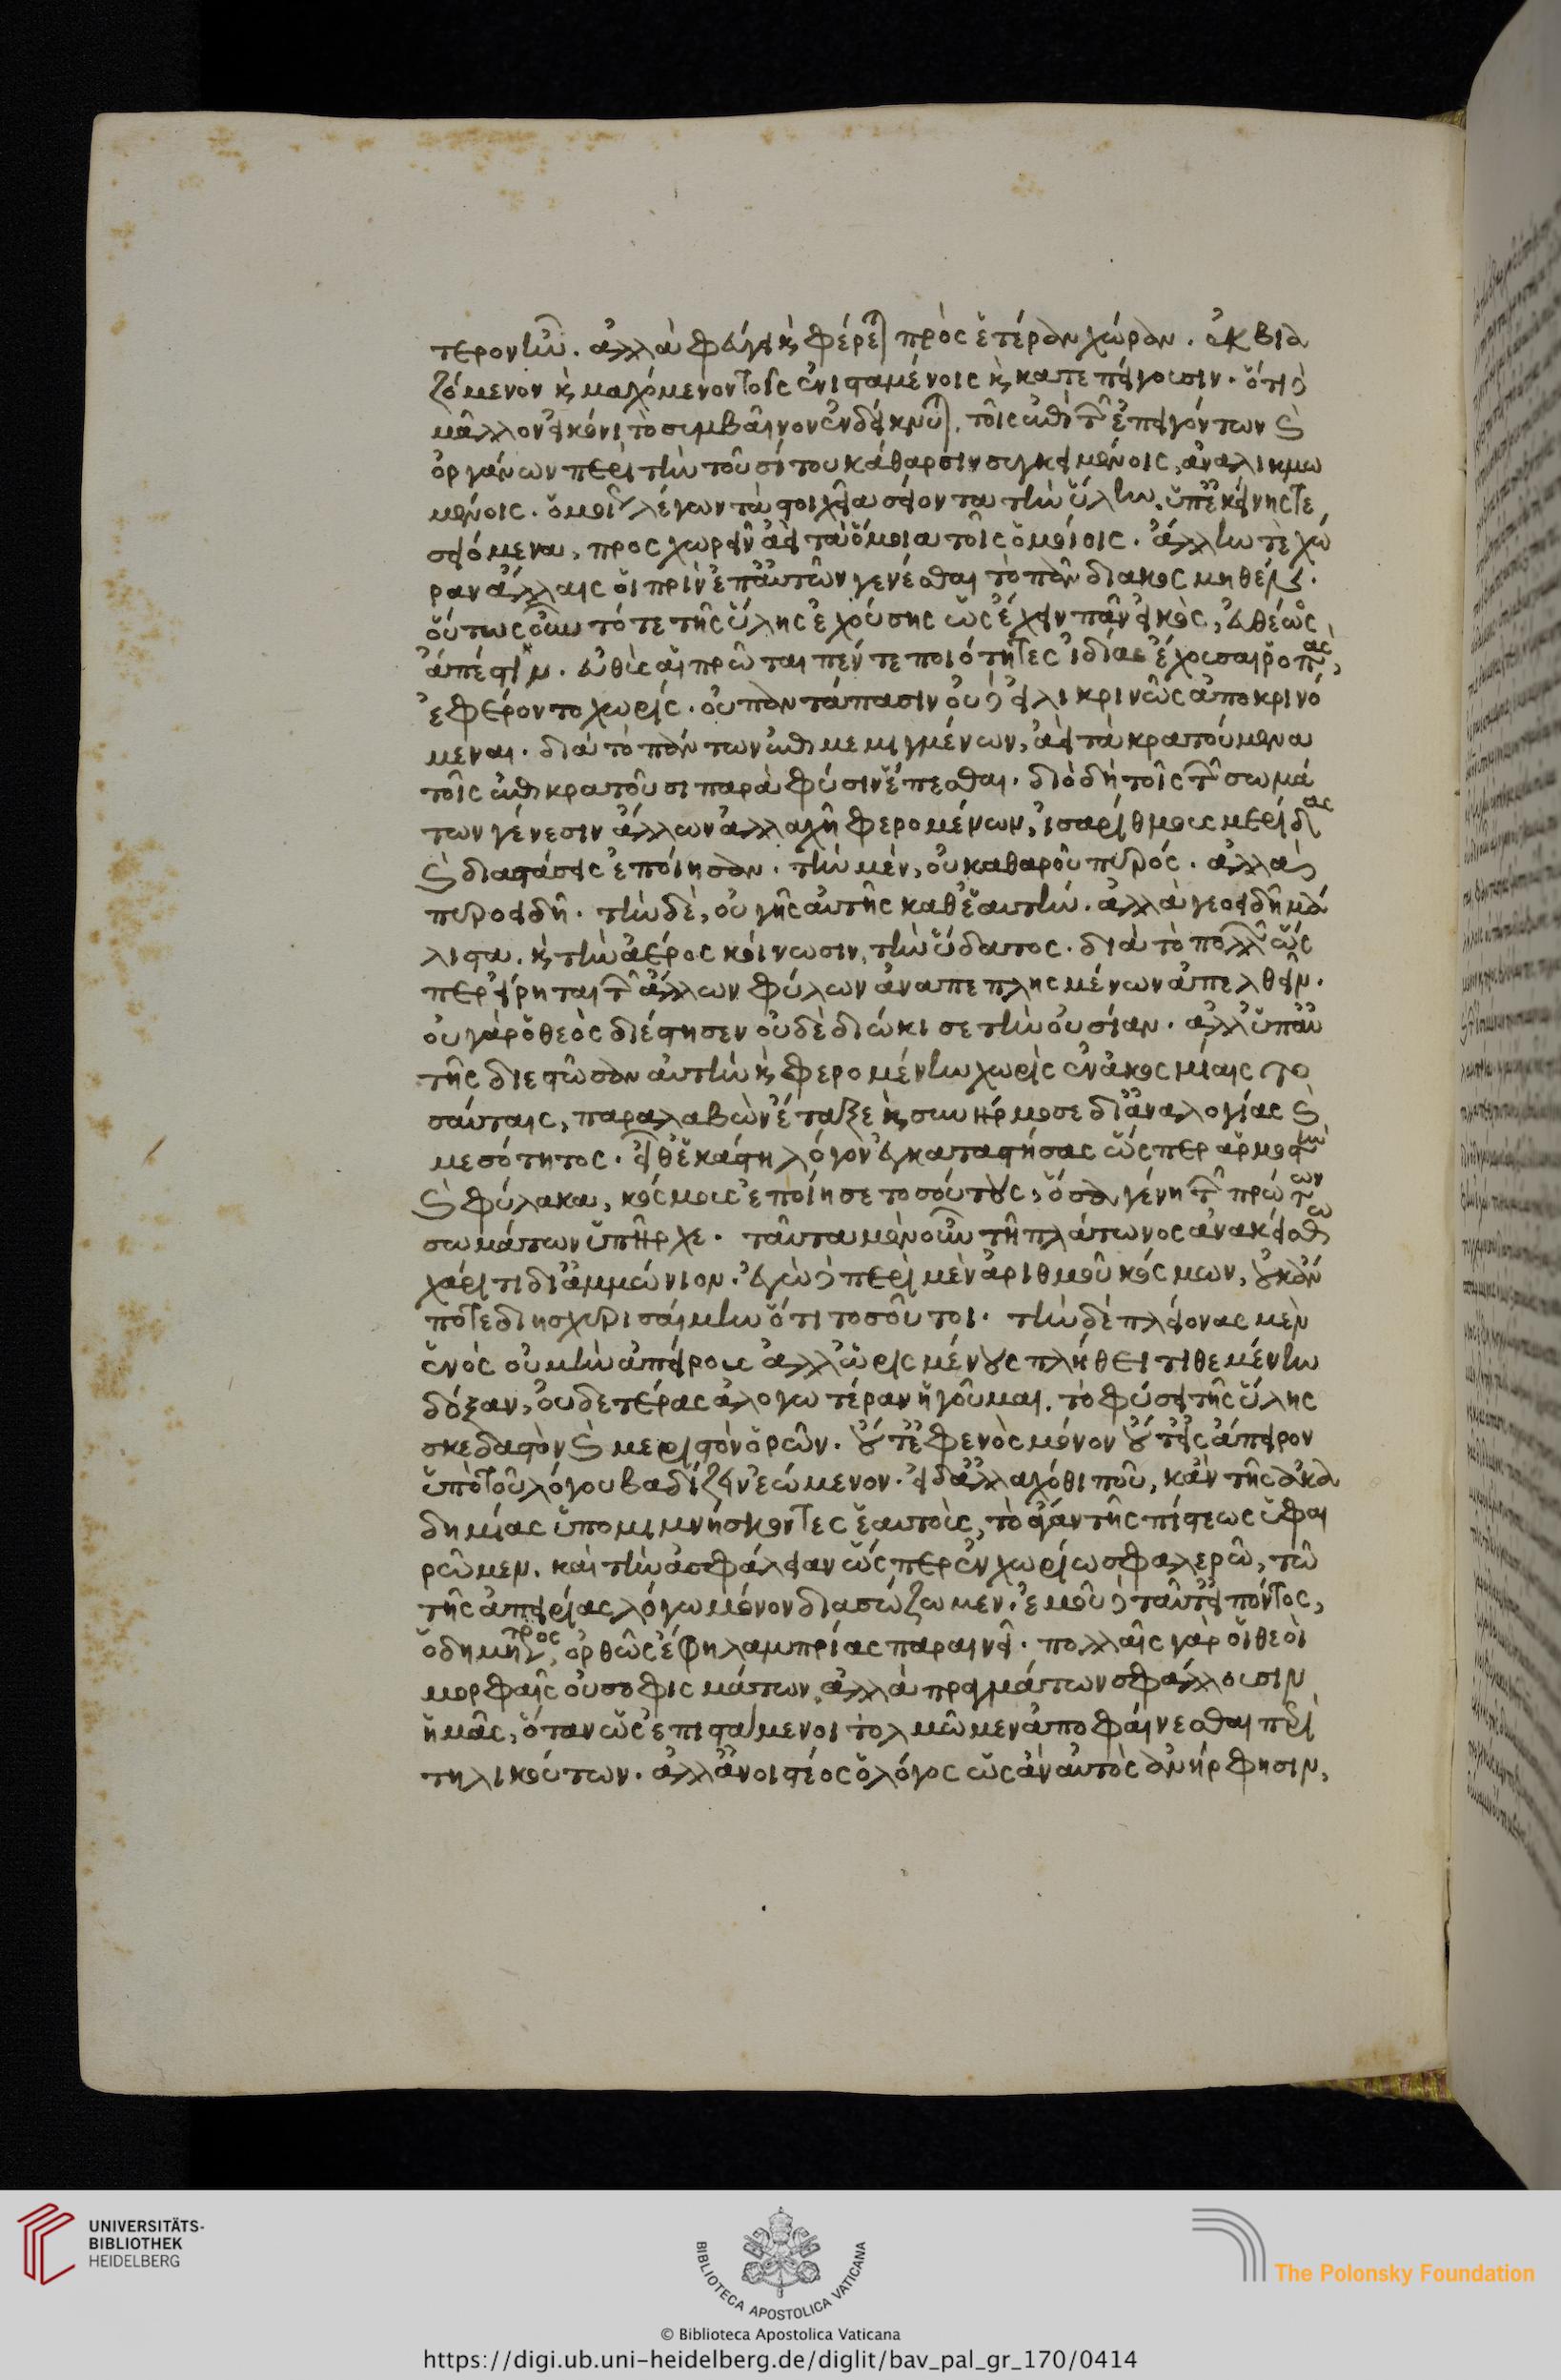 τερον ἦν. ἀλλὰ φεύγει καὶ φέρεται πρὸς ἑτέραν χώραν. ἐκβια
ζόμενον καὶ μαχόμενον τοῖς ἐνισταμένοις καὶ κατεπείγουσιν. ὅτι δὲ
μᾶλλον εἰκόνι τὸ συμβαῖνον ἐνδείκνυται. τοῖς ὑπὸ τῶν ἐπειγόντων καὶ
ὀργάνων περὶ τὴν τοῦ σίτου κάθαρσιν συγκειμένοις, ἀναλικμω
μένοις. ὁμοίως λέγων τὰ στοιχεῖα σείοντα τὴν ὕλην, ὑπ' ἐκείνης τε
σειόμενα, προς χωρεῖν ἀεὶ τὰ ὅμοια τοῖς ὁμοίοις. ἄλλην τὲ χώ
ραν ἄλλαις οἱ πρὶν ἐπ' αὐτῶν γενέσθαι τὸ πᾶν διακοσμηθέν.
οὕτως οὖν τότε τῆς ὕλης ἐχούσης ὡς ἔχειν πᾶν εἰκὸς, θεὸς
ἄπεστιν. εὐθὺς αἱ πρῶται πέντε ποιότητες ἰδίας ἔχουσαι ῥοπὰς,
ἐφέροντο χωρίς. οὐ παντάπασιν οὐδ' εἰλικρινῶς ἀποκρινό
μεναι. διὰ τὸ πάντων ἀναμεμιγμένων, ἀεὶ τὰ κρατούμενα
τοῖς ἐπικρατοῦσι παρὰ φύσιν ἕπεσθαι. διὸ δὴ τοῖς τῶν σωμά
των γένεσιν ἄλλων ἀλλαχῆ φερομένων, ἰσαρίθμους μερίδας
καὶ διαστάσεις ἐποίησαν. τὴν μὲν, οὐ καθαροῦ πυρός. ἀλλὰ
πυροειδῆ. τὴν δὲ, οὐ γῆς αὐτῆς καθ' ἑαυτήν. ἀλλὰ γεοειδῆ μά
λιστα. καὶ τὴν ἀέρος κοίνωσιν, τὴν ὕδατος. διὰ τὸ πολλῶν ὥς
περ εἴρηται τῶν ἄλλων φύλων ἀναπεπλησμένων ἀπελθεῖν.
οὐ γὰρ ὁ θεὸς διέστησεν οὐδὲ διώκισε τὴν οὐσίαν. ἀλλ' ὑπ' αὐ
τῆς διεστῶσαν αὐτὴν καὶ φερομένην χωρὶς ἐν ἀκοσμίαις το
σαύταις, παραλαβὼν ἔταξε καὶ συνήρμοσε δι' ἀναλογίας καὶ
μεσότητος. εἶθ' ἑκάστη λόγον ἐγκαταστήσας ὥσπερ ἁρμοστὴν
καὶ φύλακα, κόσμους ἐποίησε τοσούτους, ὅσα γένη τῶν πρώτων
σωμάτων ὑπῆρχε. ταῦτα μὲν οὖν τῆ πλάτωνος ἀνακείσθω
χάριτι δι' ἀμμώνιον. ἐγὼ δὲ περὶ μὲν ἀριθμοῦ κόσμων, οὐκ ἄν
ποτε διησχυρισάιμην ὅτι τοσοῦτοι. τὴν δὲ πλείονας μὲν
ἑνὸς οὐ μὴν ἀπείρους ἀλλ' ὡρισμένους πλήθει τιθεμένην
δόξαν, οὐδετέρας ἀλογωτέραν ἡγοῦμαι. τὸ φύσει τῆς ὕλης
σκεδαστὸν καὶ μεριστὸν ὁρῶν. οὔτ' ἐφ' ἑνὸς μένον οὔτ' εἰς ἄπειρον
ὑπὸ τοῦ λόγου βαδίζειν ἐώμενον. εἰ δ' ἀλλαχόθι που, κἀν τῆς ἀκα
δημίας ὑπομιμνήσκοντες ἑαυτοὺς, τὸ ἄγαν τῆς πίστεως ὑφαι
ρῶμεν. καὶ τὴν ἀσφάλειαν ὥσπερ ἐν χωρίω σφαλερῶ, τῶ
τῆς ἀπειρίας λόγω μόνον διασώζωμεν. ἐμοῦ δὲ ταῦτ' εἰπόντος,
ὁ δημήτριος, ὀρθῶς ἔφη λαμπρίας παραινεῖ. πολλαῖς γὰρ οἱ θεοὶ
μορφαῖς οὐ σοφισμάτων, ἀλλὰ πραγμάτων σφάλλουσιν
ἡμᾶς, ὅταν ὡς ἐπιστάμενοι τολμῶμεν ἀποφαίνεσθαι περὶ
τηλικούτων. ἀλλ' ἀνοιστέος ὁ λόγος ὡς ἀν αὐτὸς ἀνήρ φησιν,
UNIVERSITÄTS-
BIBLIOTHEK
HEIDELBERG
BIBLIOTECA APOSTOLICA VATICANA
The Polonsky Foundation
© Biblioteca Apostolica Vaticana
https://digi.ub.uni-heidelberg.de/diglit/bav_pal_gr_170/0414